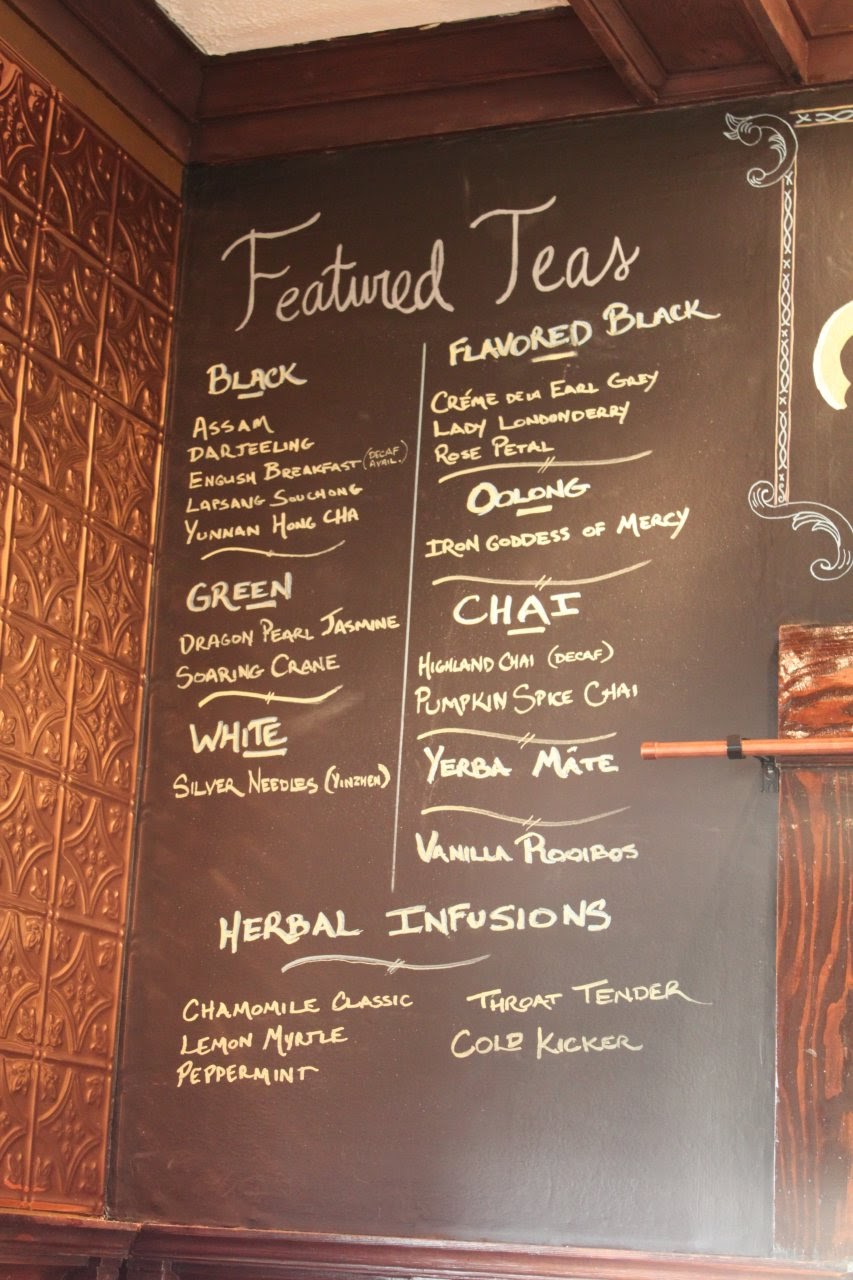 Featured Teas
BLACK
ASSAM
DARJEELING
ENGLISH BREAKFAST (DECAF AVAIL.)
LAPSANG SOUCHONG
YUNNAN HONG CHA
GREEN
DRAGON PEARL JASMINE
SOARING CRANE
WHITE
SILVER NEEDLES (YINZHEN)
FLAVORED BLACK
CRÉME DE LA EARL GREY
LADY LONDONDERRY
ROSE PETAL
OOLONG
IRON GODDESS OF MERCY
CHAI
HIGHLAND CHAI (DECAF)
PUMPKIN SPICE CHAI
YERBA MÂTE
VANILLA ROOIBOS
HERBAL INFUSIONS
CHAMOMILE CLASSIC
LEMON MYRTLE
PEPPERMINT
THROAT TENDER
COLD KICKER